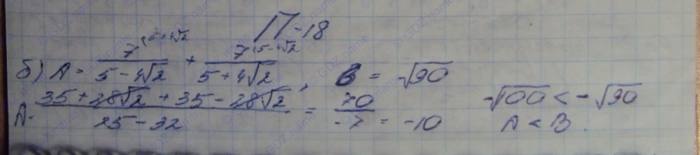 П-18
б) A = \frac{7^{(5+4\sqrt{2}}}{5-4\sqrt{2}} + \frac{7^{(5-4\sqrt{2}}}{5+4\sqrt{2}}; B = -\sqrt{90}
A = \frac{35+28\sqrt{2}+35-28\sqrt{2}}{25-32} = \frac{70}{-7} = -10 -\sqrt{100} < -\sqrt{90}
A < B